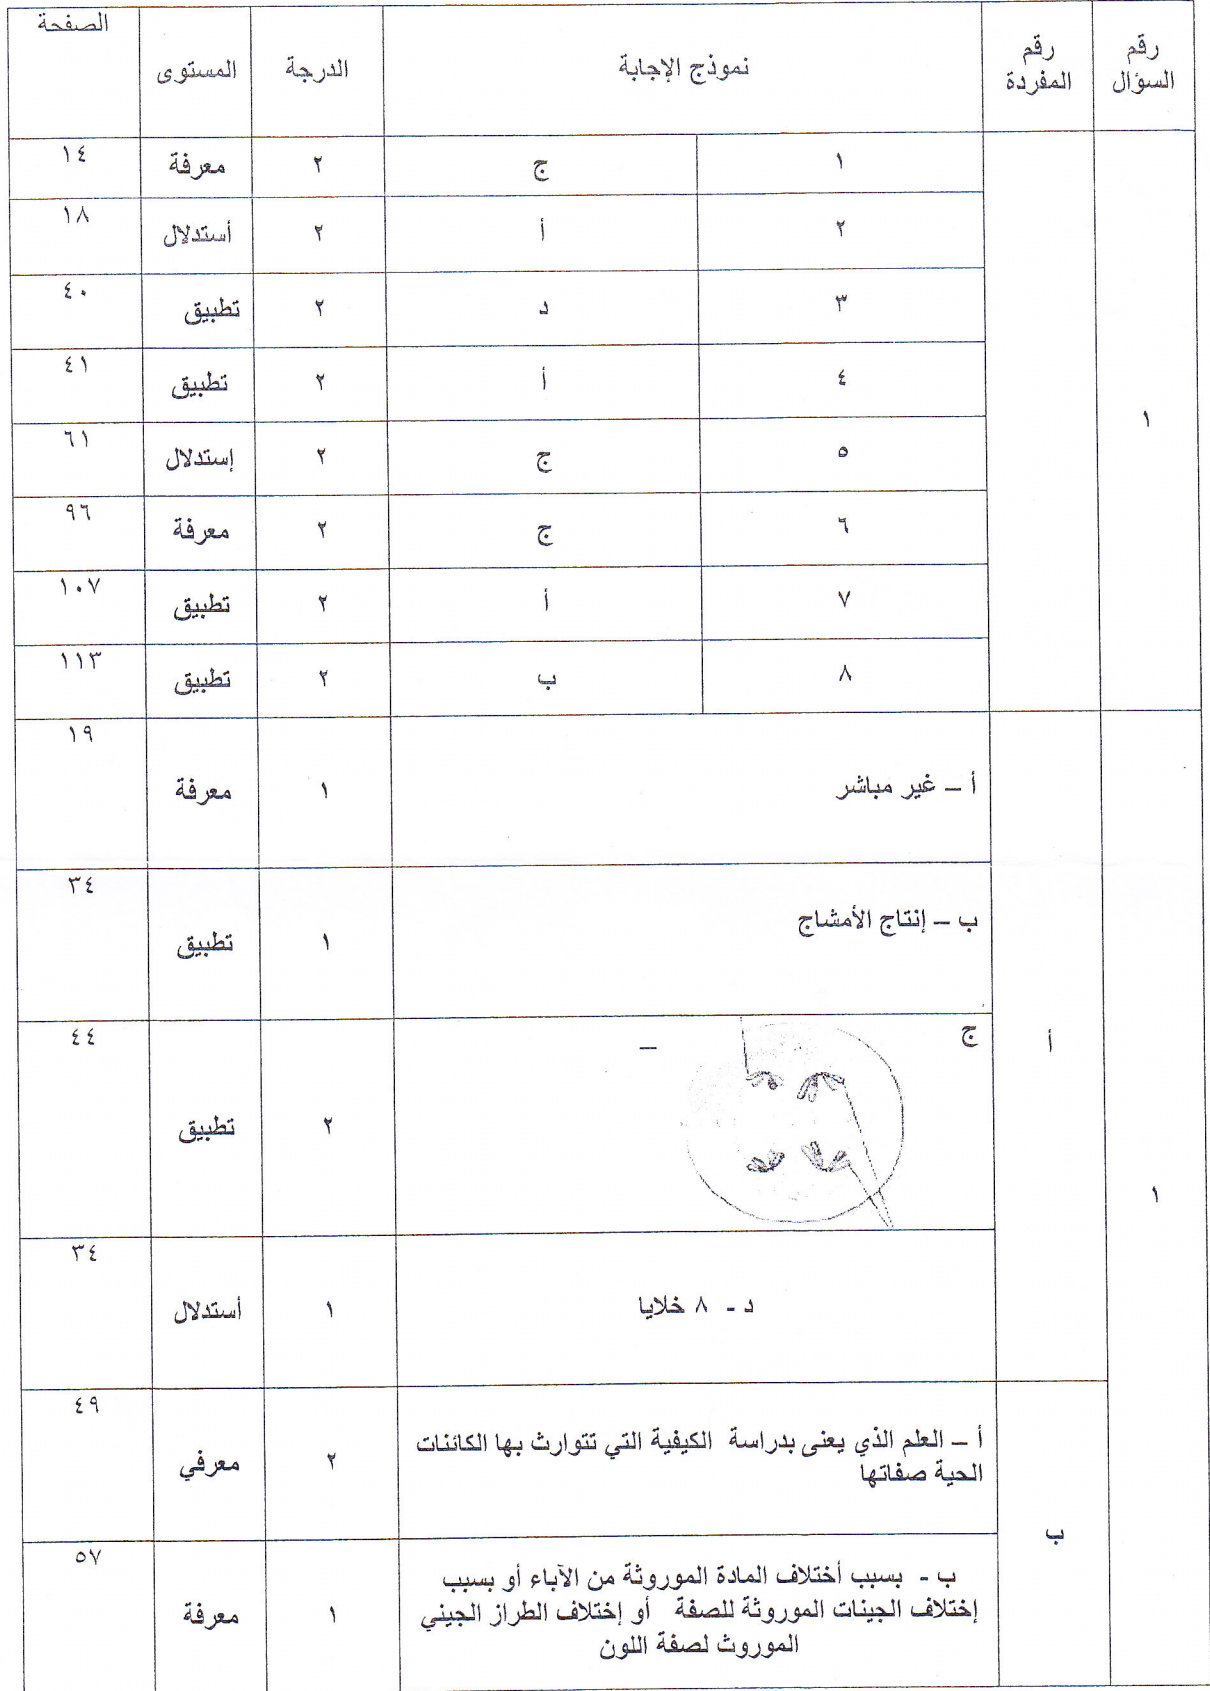 رقم السؤال رقم المفردة نموذج الإجابة الدرجة المستوى الصفحة
١
١ ج ٢ معرفة ١٤
٢ أ ٢ أستدلال ١٨
٣ د ٢ تطبيق ٤٠
٤ أ ٢ تطبيق ٤١
٥ ج ٢ إستدلال ٦١
٦ ج ٢ معرفة ٩٦
٧ أ ٢ تطبيق ١٠٧
٨ ب ٢ تطبيق ١١٣
١
أ
أ – غير مباشر ١ معرفة ١٩
ب – إنتاج الأمشاج ١ تطبيق ٣٤
ج – ٢ تطبيق ٤٤
د - ٨ خلايا ١ أستدلال ٣٤
ب
أ – العلم الذي يعنى بدراسة الكيفية التي تتوارث بها الكائنات
الحية صفاتها ٢ معرفي ٤٩
ب - بسبب أختلاف المادة الموروثة من الآباء أو بسبب
إختلاف الجينات الموروثة للصفة أو إختلاف الطراز الجيني
الموروث لصفة اللون ١ معرفة ٥٧